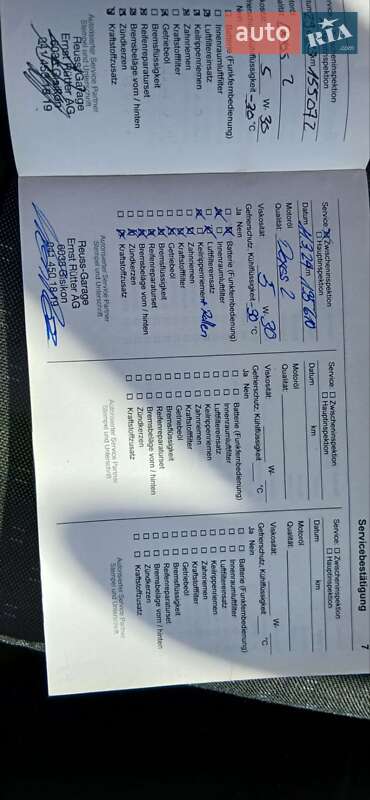 auto RIA.com
Servicebestätigung 7
Hauptinspektion
km 155077
Viskosität 5 W- 30
Gefrierschutz, Kühlflüssigkeit -30 °C
Batterie (Funkfernbedienung)
Innenraumluftfilter
Luftfiltereinsatz
Keilrippenriemen
Zahnriemen
Kraftstofffilter
Getriebeöl
Bremsflüssigkeit
Reifenreparaturset
Bremsbeläge vorn / hinten
Zündkerzen
Kraftstoffzusatz
Autorisierter Service Partner
Stempel und Unterschrift
Reuss-Garage
Ernst Rütter AG
Service: Zwischeninspektion
Hauptinspektion
Datum km
Motoröl
Qualität:
Viskosität: 5 W- 30
Gefrierschutz, Kühlflüssigkeit -30 °C
Ja Nein
Batterie (Funkfernbedienung)
Innenraumluftfilter
Luftfiltereinsatz
Keilrippenriemen + Rollen
Zahnriemen
Kraftstofffilter
Getriebeöl
Bremsflüssigkeit
Reifenreparaturset
Bremsbeläge vorn / hinten
Zündkerzen
Kraftstoffzusatz
Autorisierter Service Partner
Stempel und Unterschrift
Reuss-Garage
Ernst Rütter AG
6038 Gisikon
Service: Zwischeninspektion
Hauptinspektion
Datum km
Motoröl
Qualität:
Viskosität: W-
Gefrierschutz, Kühlflüssigkeit °C
Ja Nein
Batterie (Funkfernbedienung)
Innenraumluftfilter
Luftfiltereinsatz
Keilrippenriemen
Zahnriemen
Kraftstofffilter
Getriebeöl
Bremsflüssigkeit
Reifenreparaturset
Bremsbeläge vorn / hinten
Zündkerzen
Kraftstoffzusatz
Autorisierter Service Partner
Stempel und Unterschrift
Service: Zwischeninspektion
Hauptinspektion
Datum km
Motoröl
Qualität:
Viskosität: W-
Gefrierschutz, Kühlflüssigkeit °C
Ja Nein
Batterie (Funkfernbedienung)
Innenraumluftfilter
Luftfiltereinsatz
Keilrippenriemen
Zahnriemen
Kraftstofffilter
Getriebeöl
Bremsflüssigkeit
Reifenreparaturset
Bremsbeläge vorn / hinten
Zündkerzen
Kraftstoffzusatz
Autorisierter Service Partner
Stempel und Unterschrift